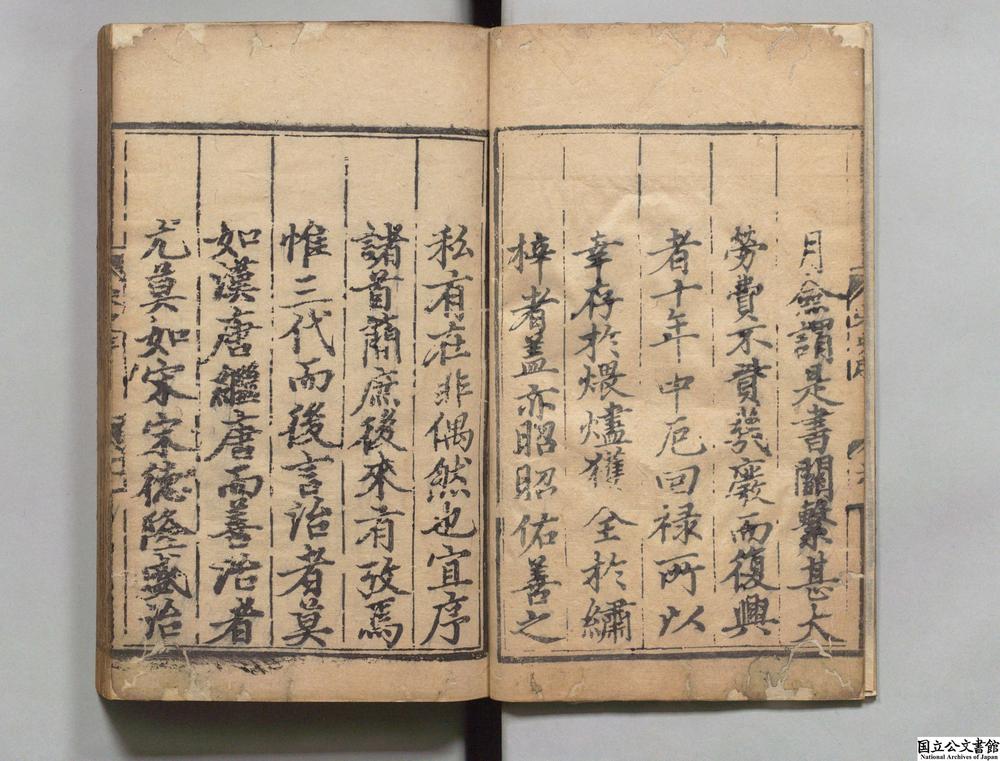 月僉謂是書關繫甚大
勞費不貲幾廢而復興
者十年中厄回祿所以
幸存於煨燼獲全於繡
梓者蓋亦昭昭佑善之
私有在非偶然也宜序
諸首蕳庶後來有攷焉
惟三代而後言治者莫
如漢唐繼唐而善治者
亢莫如宋宋德隆盛治
国立公文書館
National Archives of Japan